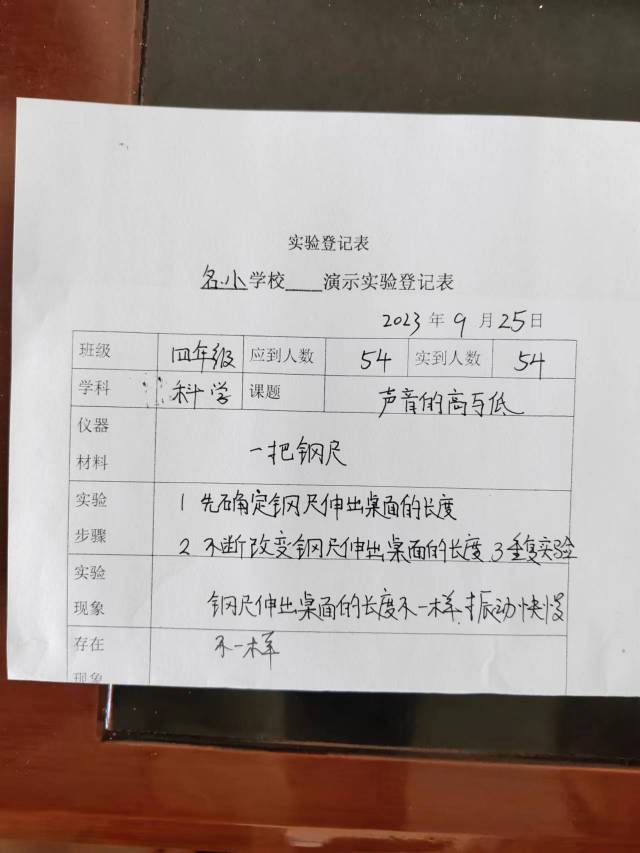 实验登记表
名小学校____演示实验登记表
2023年9月25日
班级 四年级 应到人数 54 实到人数 54
学科 科学 课题 声音的高与低
仪器材料 一把钢尺
实验步骤 1 先确定钢尺伸出桌面的长度
2 不断改变钢尺伸出桌面的长度 3重复实验
实验现象 钢尺伸出桌面的长度不一样,振动快慢
不一样
存在现象